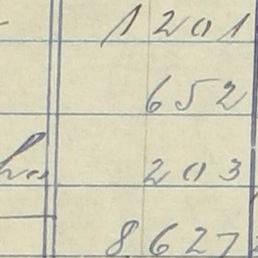 1201
652
203
8627